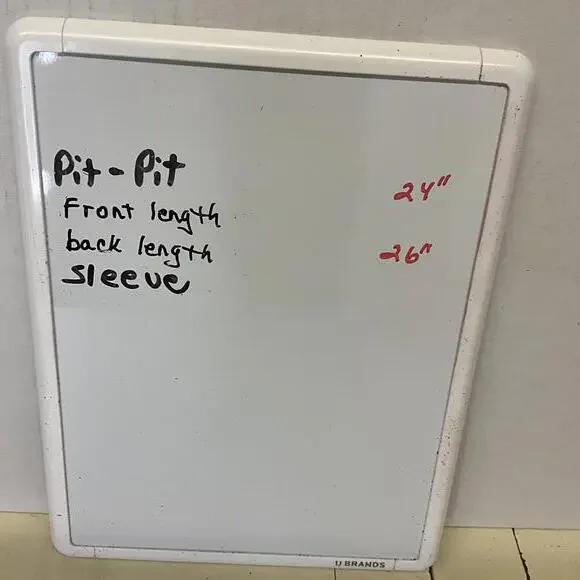 Pit - Pit 24"
Front length
back length 26"
Sleeve
U BRANDS